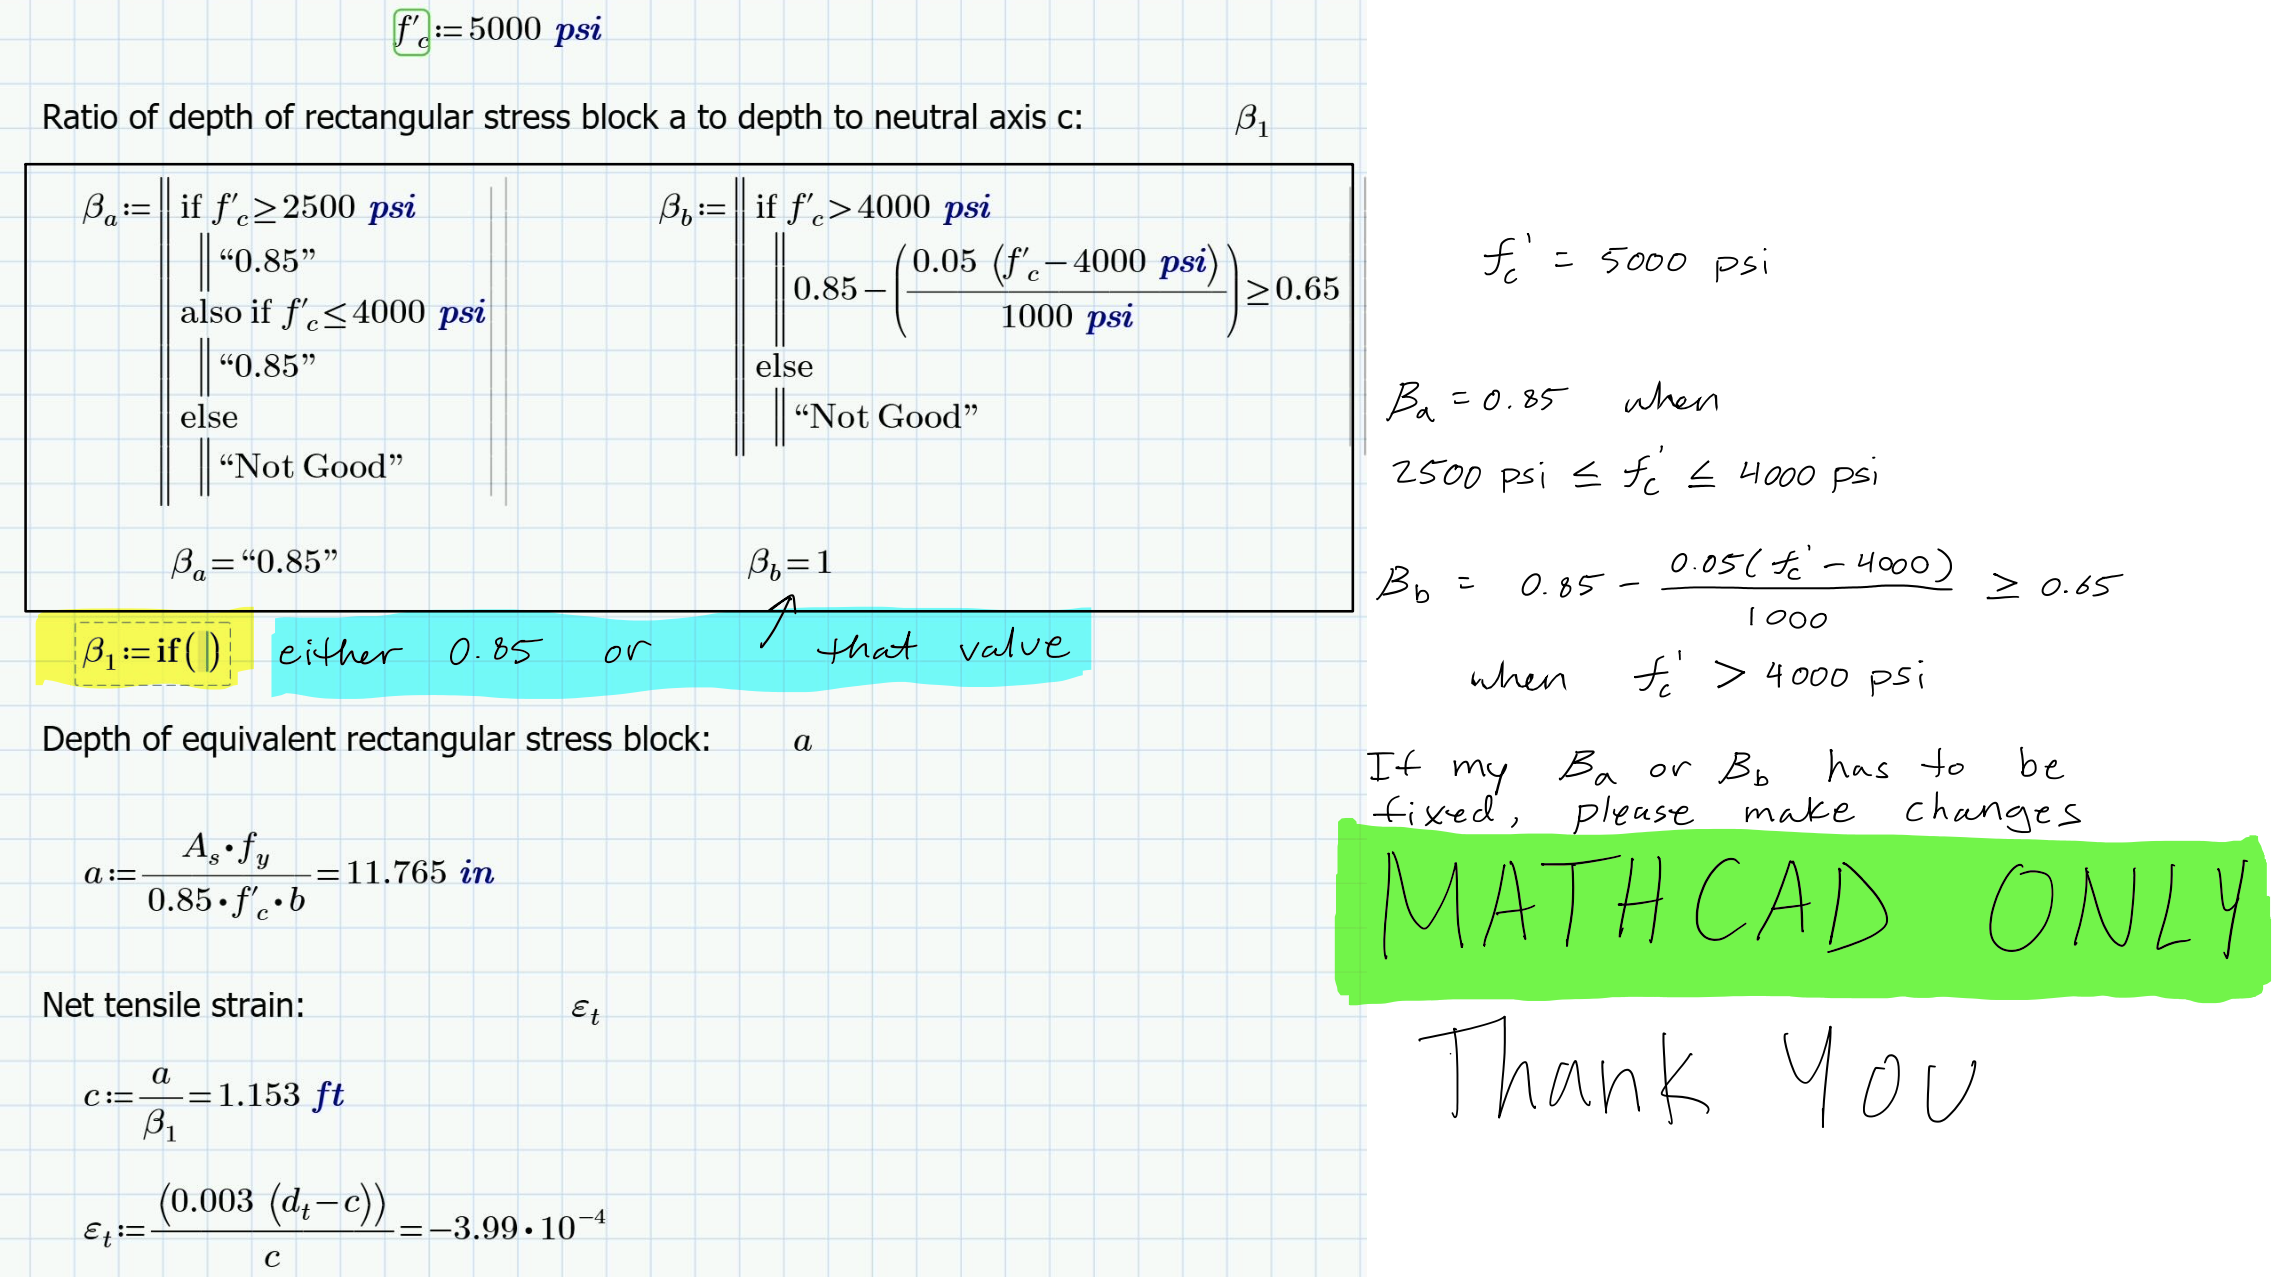 f′c := 5000 psi
Ratio of depth of rectangular stress block a to depth to neutral axis c: β1
βa := if f′c ≥ 2500 psi
“0.85”
also if f′c ≤ 4000 psi
“0.85”
else
“Not Good”
βa = “0.85”
βb := if f′c > 4000 psi
0.85 − (0.05 (f′c − 4000 psi) / 1000 psi) ≥ 0.65
else
“Not Good”
βb = 1
β1 := if( ) either 0.85 or that value
Depth of equivalent rectangular stress block: a
a := As • fy / 0.85 • f′c • b = 11.765 in
Net tensile strain: εt
c := a / β1 = 1.153 ft
εt := (0.003 (dt − c)) / c = −3.99 • 10^−4
fc' = 5000 psi
Ba = 0.85 when
2500 psi ≤ fc' ≤ 4000 psi
Bb = 0.85 − 0.05(fc' − 4000) / 1000 ≥ 0.65
when fc' > 4000 psi
If my Ba or Bb has to be
fixed, please make changes
MATHCAD ONLY
Thank You